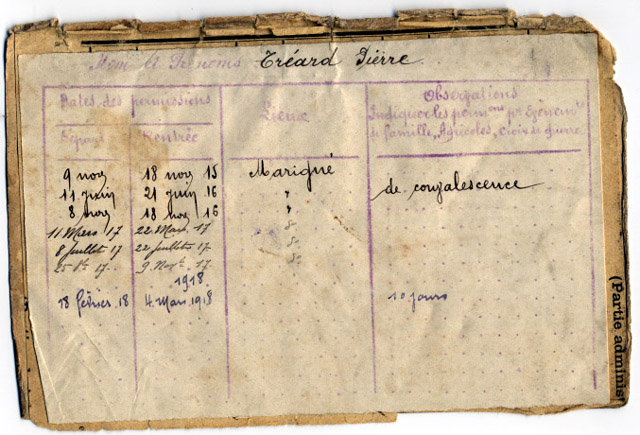 Nom et Prénoms Tréard Pierre
Dates des permissions Lieux Observations
Indiquer les perm ons pr Evènem ts
de famille, Agricoles, croix de guerre
Départ Rentrée
9 nov 18 nov 15 Marigné
11 juin 21 juin 16 " de convalescence
8 nov 18 nov 16 "
11 Mars 17 22 Mars 17 do
8 juillet 17 22 juillet 17 do
25 8bre 17 9 Nov. 17 do
1918
18 février 18 4 Mars 1918 10 jours
(Partie adminis